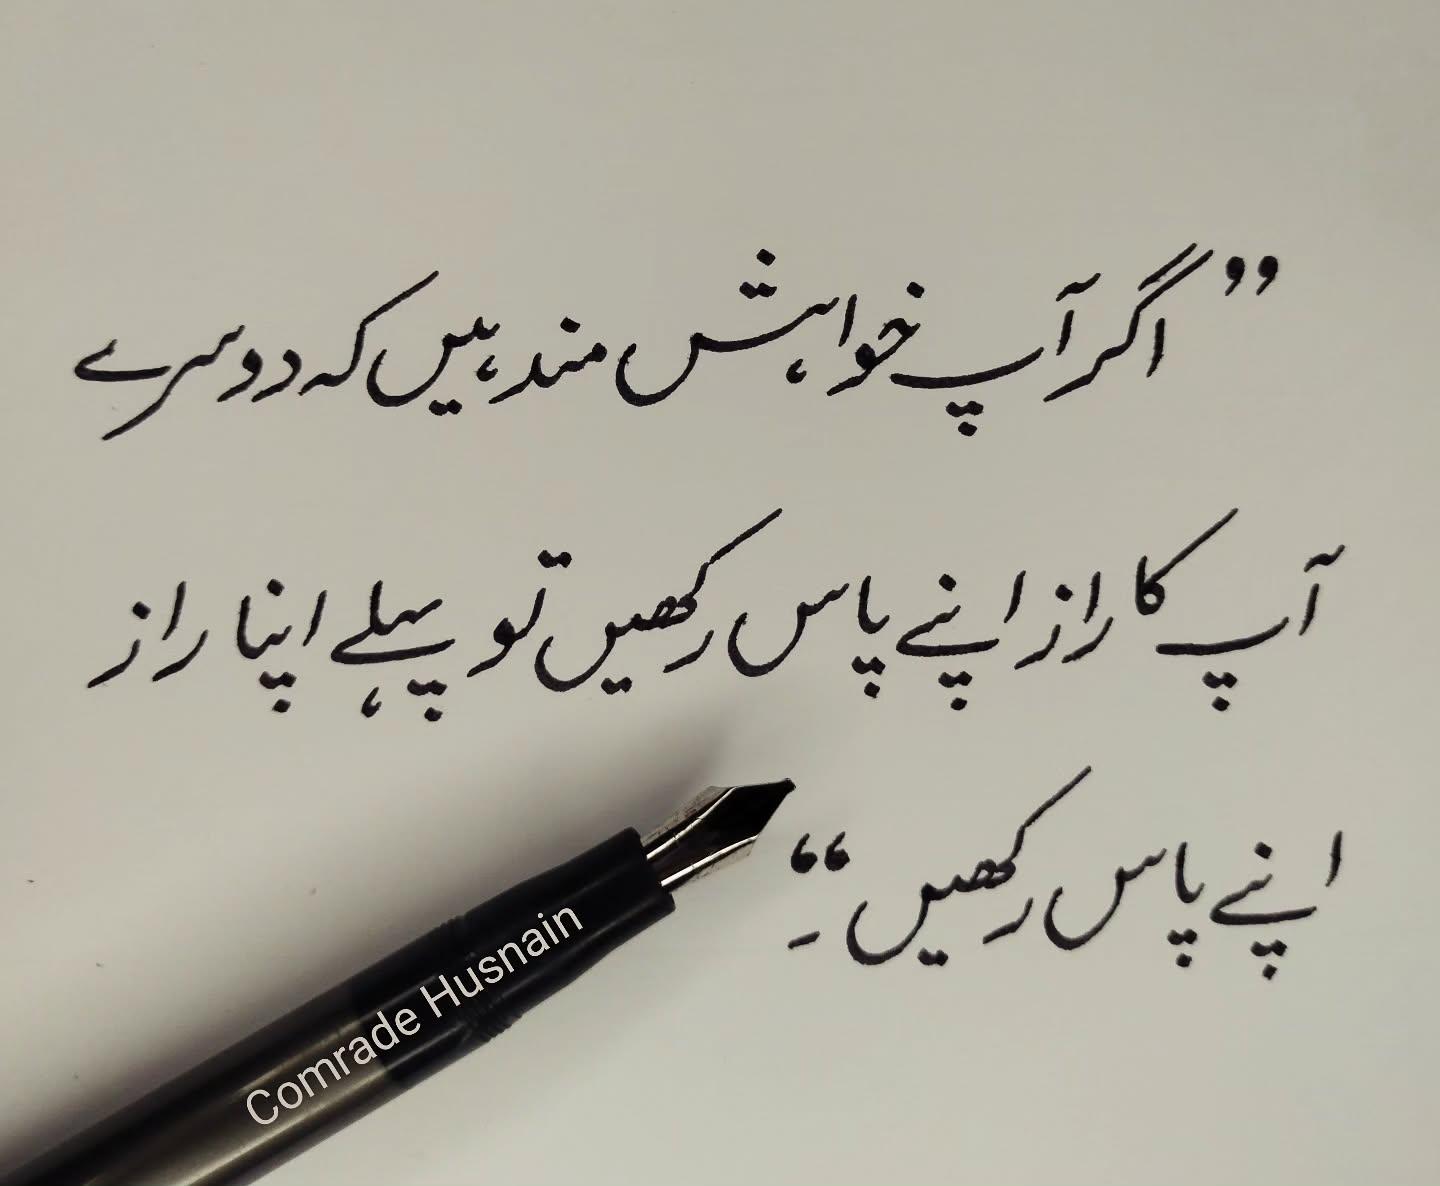 ”اگر آپ خواہش مند ہیں کہ دوسرے
آپ کا راز اپنے پاس رکھیں تو پہلے اپنا راز
اپنے پاس رکھیں۔“
Comrade Husnain